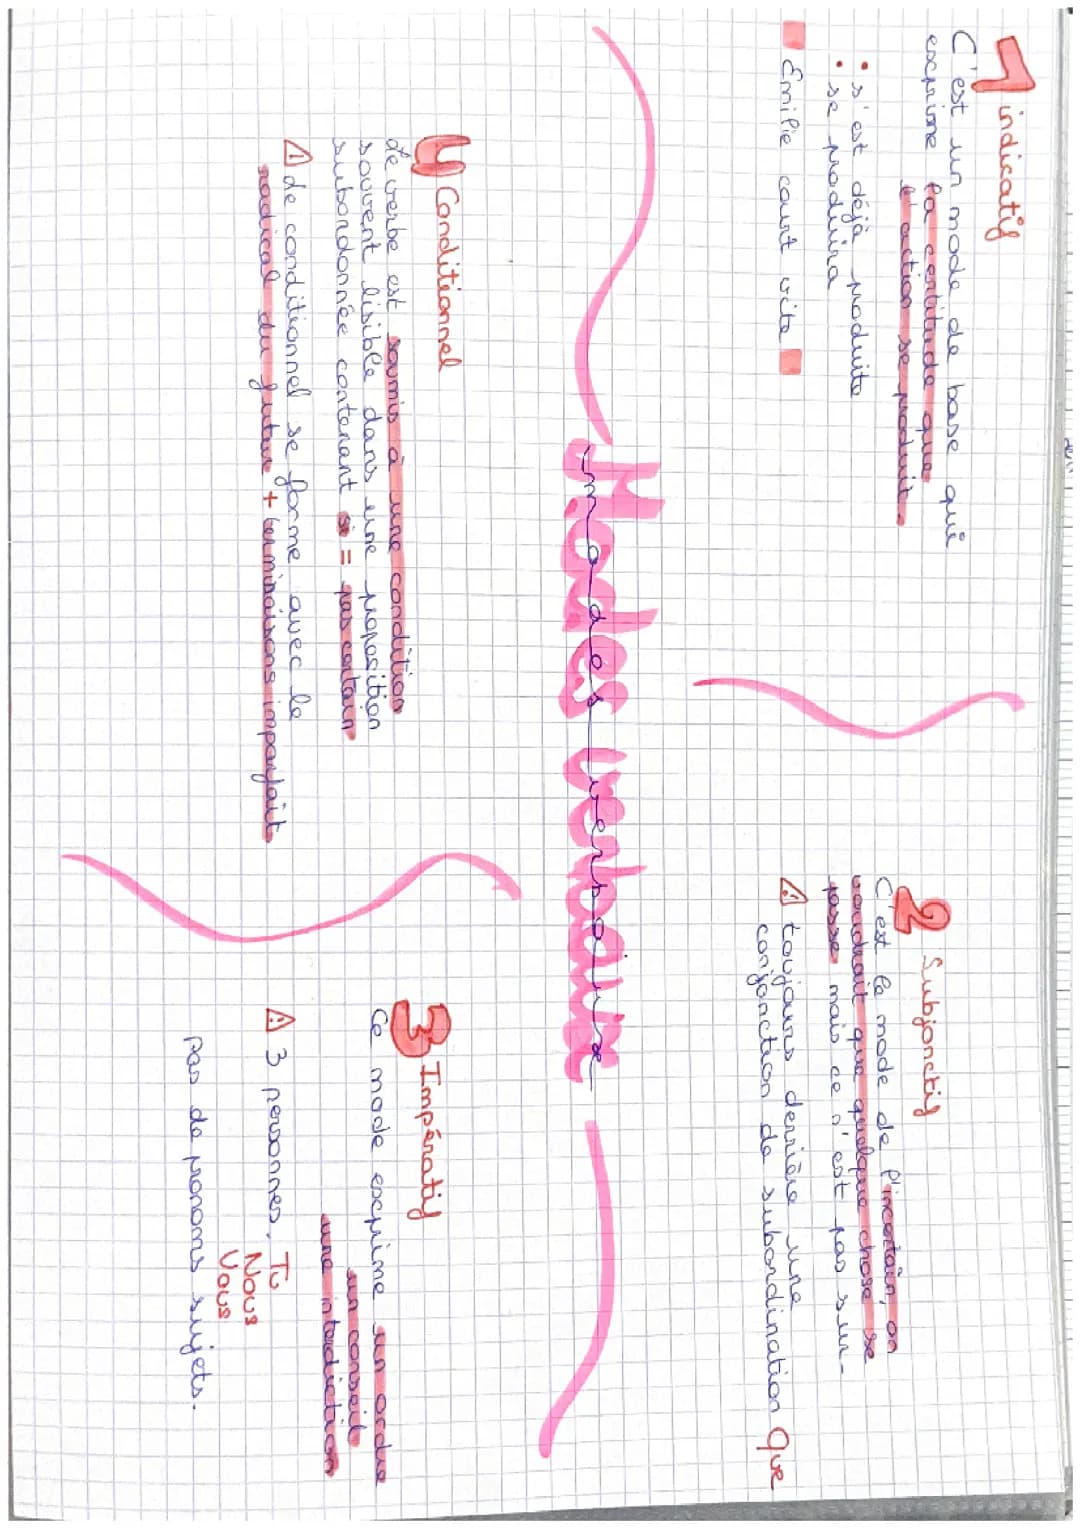 1 indicatif
C'est un mode de base qui
exprime la certitude que
l'action se produit.
• s'est déjà produite
• se produira
Emilie court vite
2 Subjonctif
C'est le mode de l'incertain, on
voudrait que quelque chose se
passe mais ce n'est pas sur.
⚠ toujours derrière une
conjonction de subordination que
Modes verbaux
modes verbaux
4 Conditionnel
Le verbe est soumis à une condition
souvent lisible dans une proposition
subordonnée contenant si = pas certain
⚠ Le conditionnel se forme avec le
radical du futur + terminaisons imparfait
3 Impératif
Ce mode exprime un ordre
un conseil
une interdiction
⚠ 3 personnes. Tu
Nous
Vous
pas de pronoms sujets.